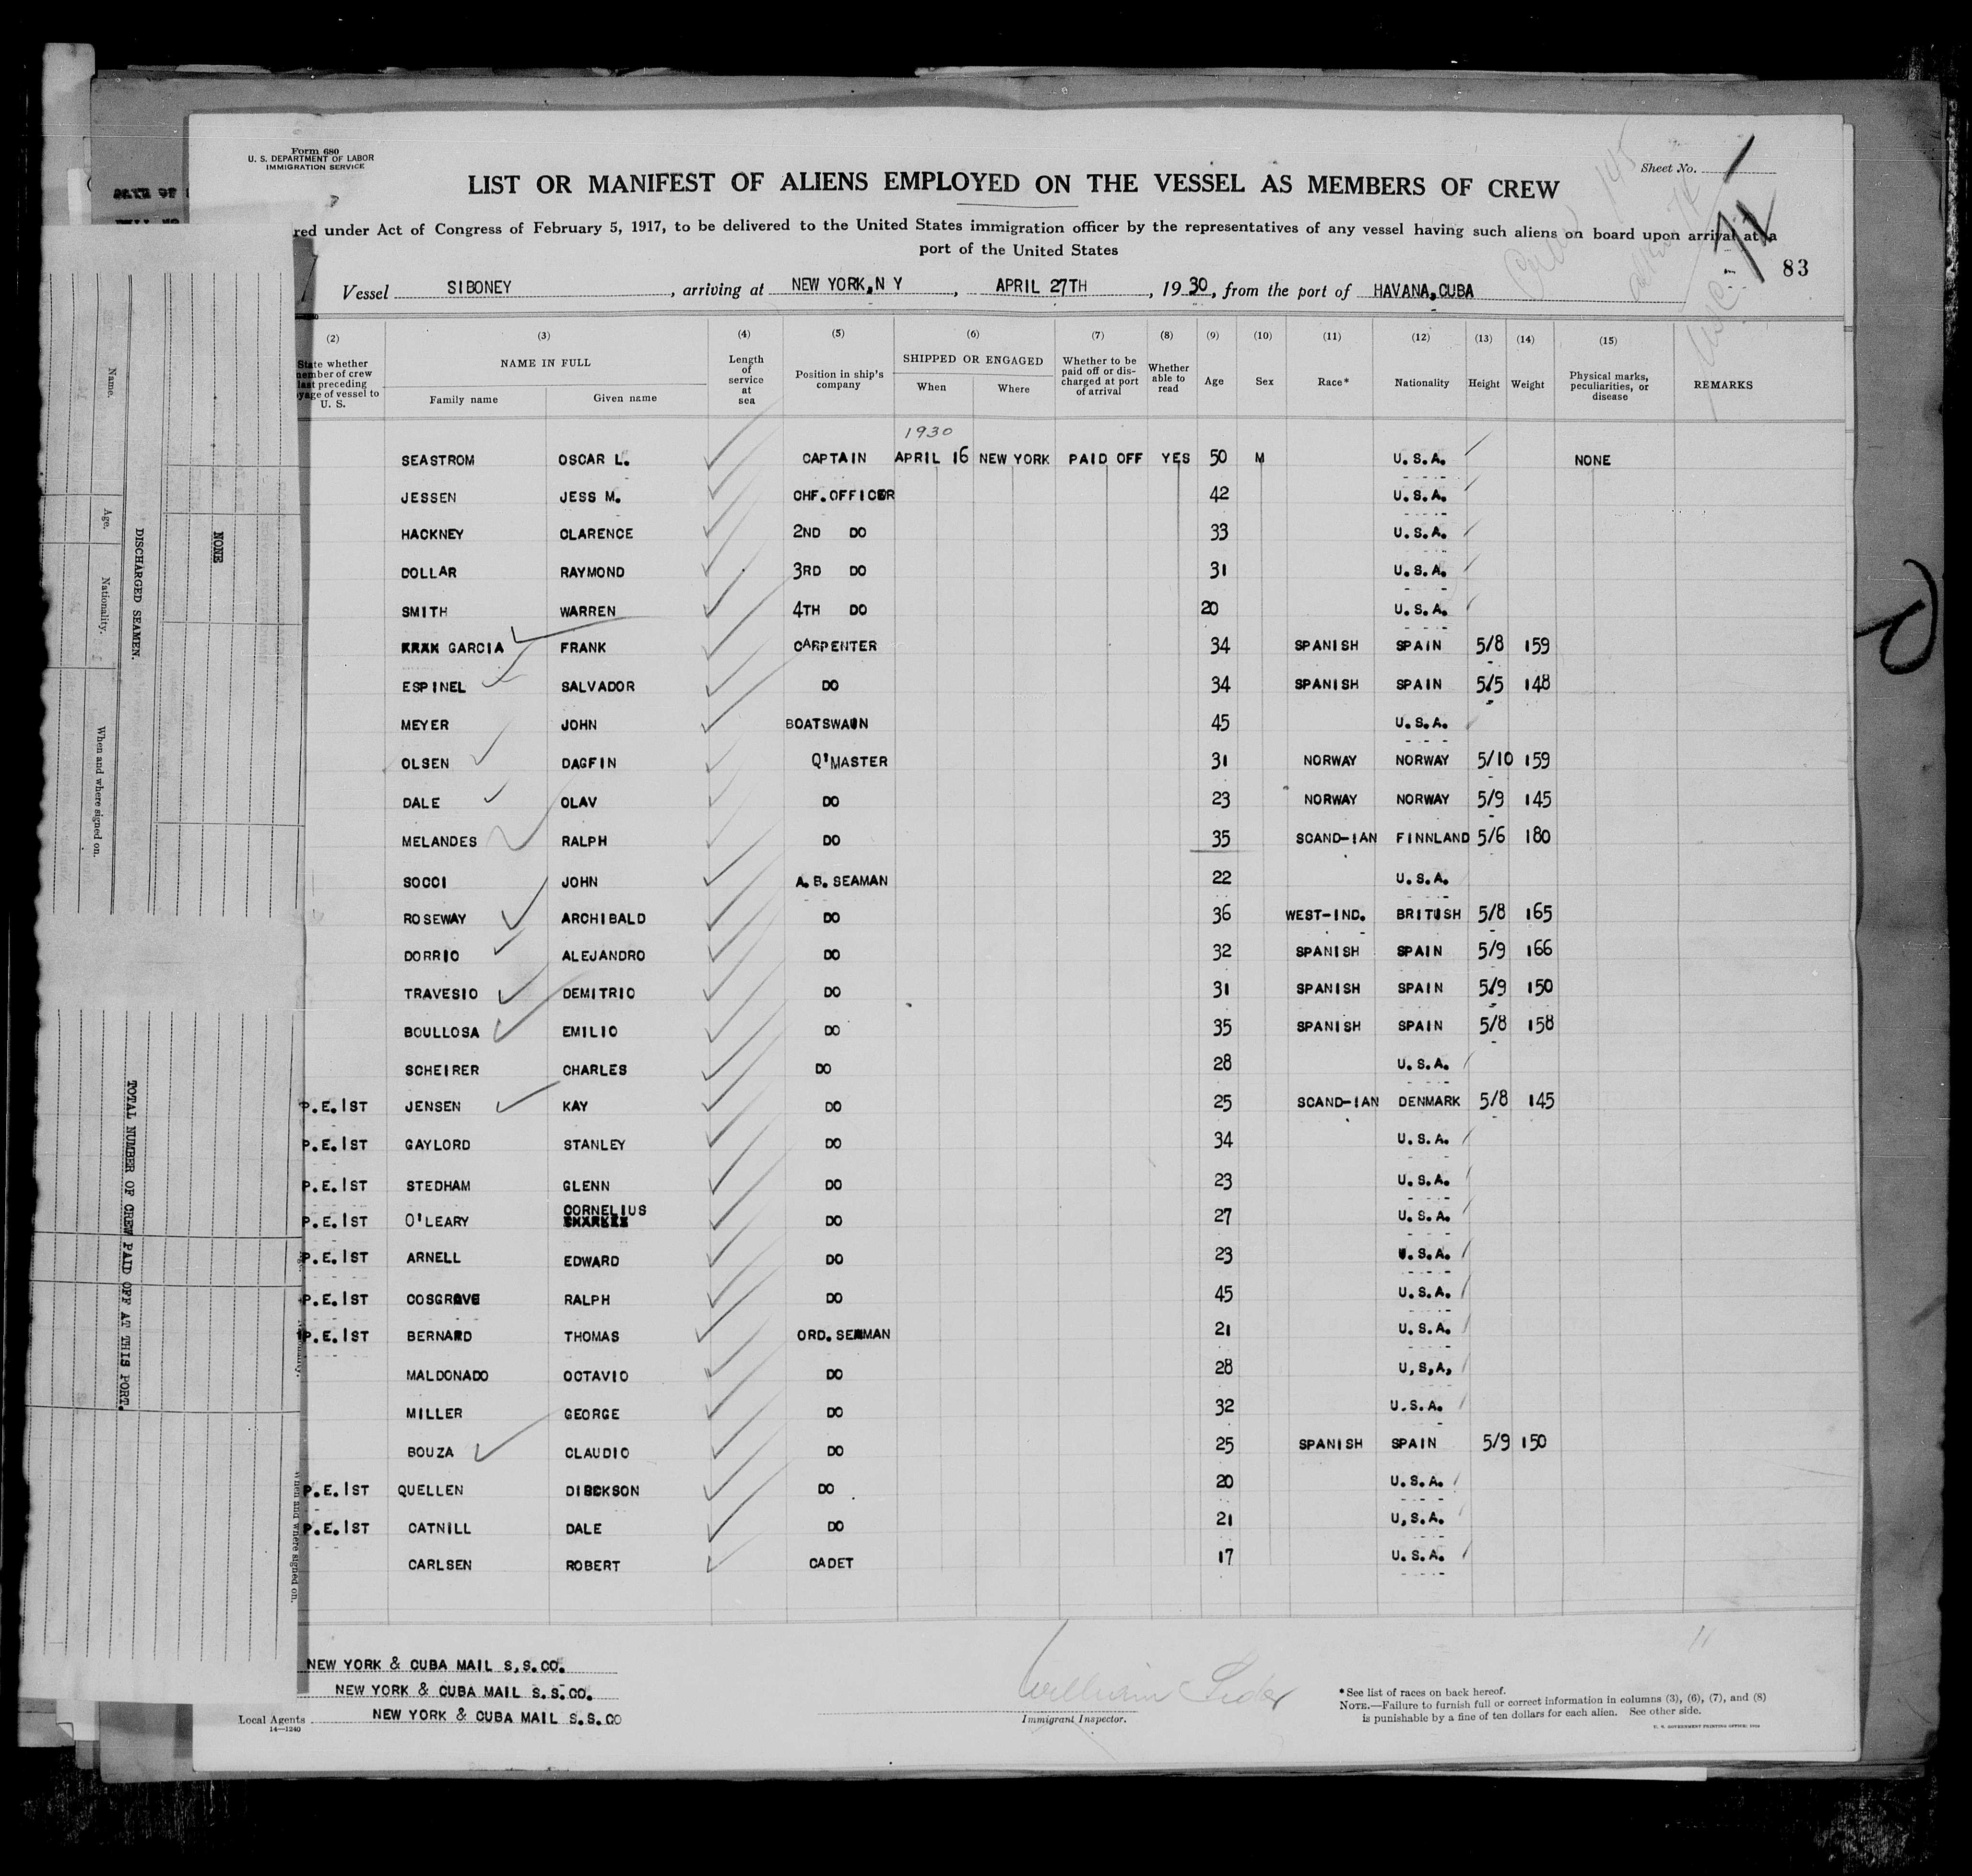 Form 680
U. S. DEPARTMENT OF LABOR
IMMIGRATION SERVICE
Sheet No. 1
LIST OR MANIFEST OF ALIENS EMPLOYED ON THE VESSEL AS MEMBERS OF CREW
red under Act of Congress of February 5, 1917, to be delivered to the United States immigration officer by the representatives of any vessel having such aliens on board upon arrival at a
port of the United States
83
Vessel SIBONEY, arriving at NEW YORK, N Y, APRIL 27TH, 1930, from the port of HAVANA, CUBA
(2) (3) (4) (5) (6) (7) (8) (9) (10) (11) (12) (13) (14) (15)
State whether member of crew last preceding voyage of vessel to U. S.
NAME IN FULL
Family name Given name
Length of service at sea
Position in ship's company
SHIPPED OR ENGAGED
When Where
Whether to be paid off or discharged at port of arrival
Whether able to read
Age Sex Race* Nationality Height Weight
Physical marks, peculiarities, or disease
REMARKS
1930
SEASTROM OSCAR L. CAPTAIN APRIL 16 NEW YORK PAID OFF YES 50 M U.S.A. NONE
JESSEN JESS M. CHF.OFFICER 42 U.S.A.
HACKNEY CLARENCE 2ND DO 33 U.S.A.
DOLLAR RAYMOND 3RD DO 31 U.S.A.
SMITH WARREN 4TH DO 20 U.S.A.
GARCIA FRANK CARPENTER 34 SPANISH SPAIN 5/8 159
ESPINEL SALVADOR DO 34 SPANISH SPAIN 5/5 148
MEYER JOHN BOATSWAIN 45 U.S.A.
OLSEN DAGFIN Q'MASTER 31 NORWAY NORWAY 5/10 159
DALE OLAV DO 23 NORWAY NORWAY 5/9 145
MELANDES RALPH DO 35 SCAND-IAN FINNLAND 5/6 180
SOCCI JOHN A.B. SEAMAN 22 U.S.A.
ROSEWAY ARCHIBALD DO 36 WEST-IND. BRITISH 5/8 165
DORRIO ALEJANDRO DO 32 SPANISH SPAIN 5/9 166
TRAVESIO DEMITRIO DO 31 SPANISH SPAIN 5/9 150
BOULLOSA EMILIO DO 35 SPANISH SPAIN 5/8 158
SCHEIRER CHARLES DO 28 U.S.A.
P.E.1ST JENSEN KAY DO 25 SCAND-IAN DENMARK 5/8 145
P.E.1ST GAYLORD STANLEY DO 34 U.S.A.
P.E.1ST STEDHAM GLENN DO 23 U.S.A.
P.E.1ST O'LEARY CORNELIUS DO 27 U.S.A.
P.E.1ST ARNELL EDWARD DO 23 U.S.A.
P.E.1ST COSGROVE RALPH DO 45 U.S.A.
P.E.1ST BERNARD THOMAS ORD. SEAMAN 21 U.S.A.
MALDONADO OCTAVIO DO 28 U,S,A,
MILLER GEORGE DO 32 U.S.A.
BOUZA CLAUDIO DO 25 SPANISH SPAIN 5/9 150
P.E.1ST QUELLEN DICKSON DO 20 U.S.A.
P.E.1ST CATNILL DALE DO 21 U,S.A.
CARLSEN ROBERT CADET 17 U.S.A.
NEW YORK & CUBA MAIL S.S.CO.
NEW YORK & CUBA MAIL S.S.CO.
Local Agents NEW YORK & CUBA MAIL S.S.CO
14—1240
William
Immigrant Inspector.
*See list of races on back hereof.
NOTE.—Failure to furnish full or correct information in columns (3), (6), (7), and (8)
is punishable by a fine of ten dollars for each alien. See other side.
Name.
Age.
Nationality.
When and where signed on.
DISCHARGED SEAMEN.
NONE
TOTAL NUMBER OF CREW PAID OFF AT THIS PORT.
When and where signed on.